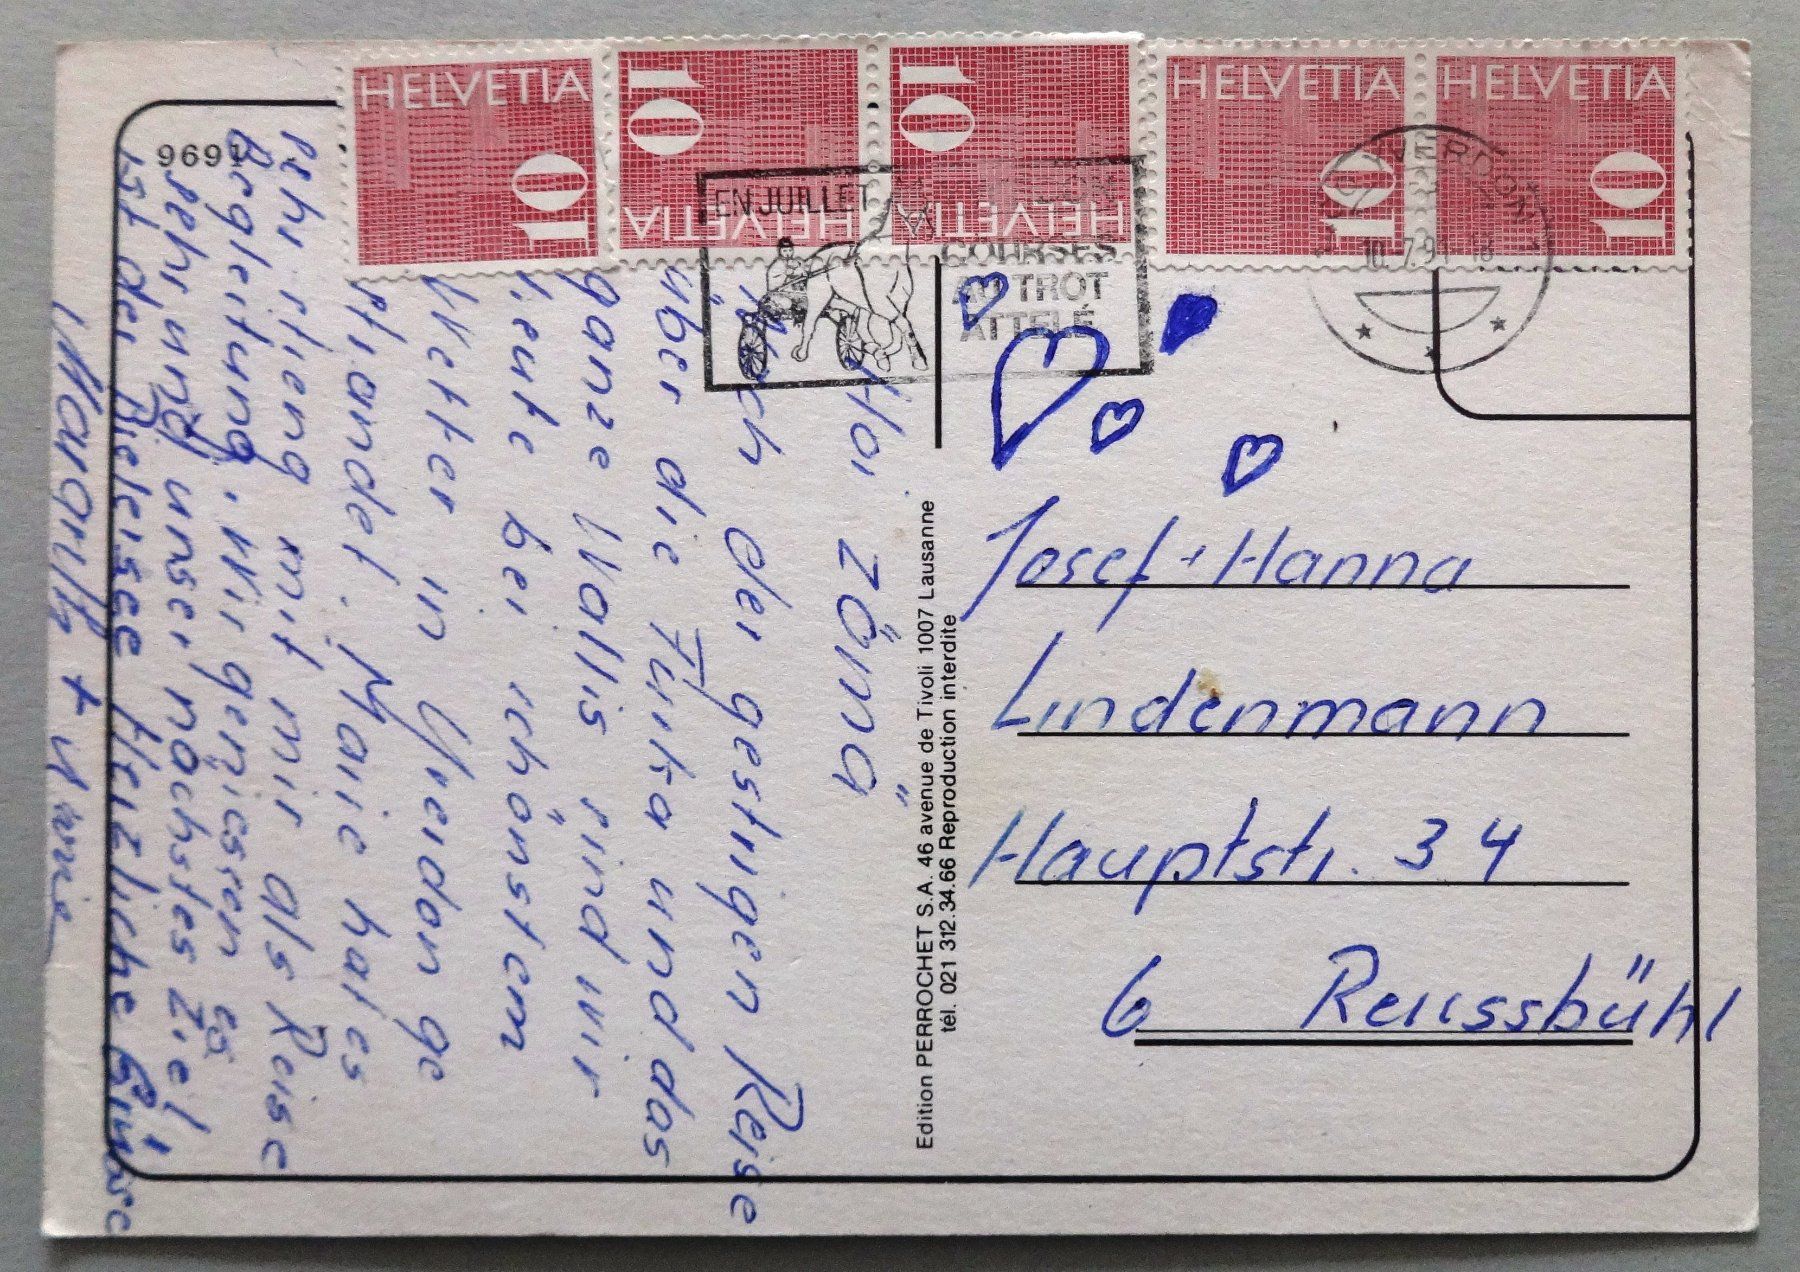 HELVETIA
10
HELVETIA
10
HELVETIA
10
HELVETIA
10
HELVETIA
10
EN JUILLET
YVERDON
COURSES
AU TROT
ATTELÉ
YVERDON
10.-7.91-18
Hoi zömä
Nach der gestrigen Reise
über die Furka und das
ganze Wallis sind wir
heute bei schönstem
Wetter in Yverdon ge
standet. Marie hat es
sehr streng mit mir als Reise
Begleitung. Wir geniessen es
sehr und unser nächstes Ziel
ist der Bielersee Herzliche Grüsse
Margrith + Marie
Edition PERROCHET S.A. 46 avenue de Tivoli 1007 Lausanne
tél. 021 312.34.66 Reproduction interdite
Josef + Hanna
Lindenmann
Hauptstr. 34
6 Reussbühl